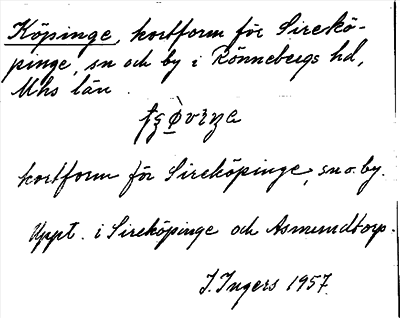 Köpinge, kortform för Sirekö-
pinge, sn och by i Rönnebergs hd,
Mhs län.
kortform för Sireköpinge, sn o. by.
Uppt. i Sireköpinge och Asmundtorp.
I. Ingers 1957.